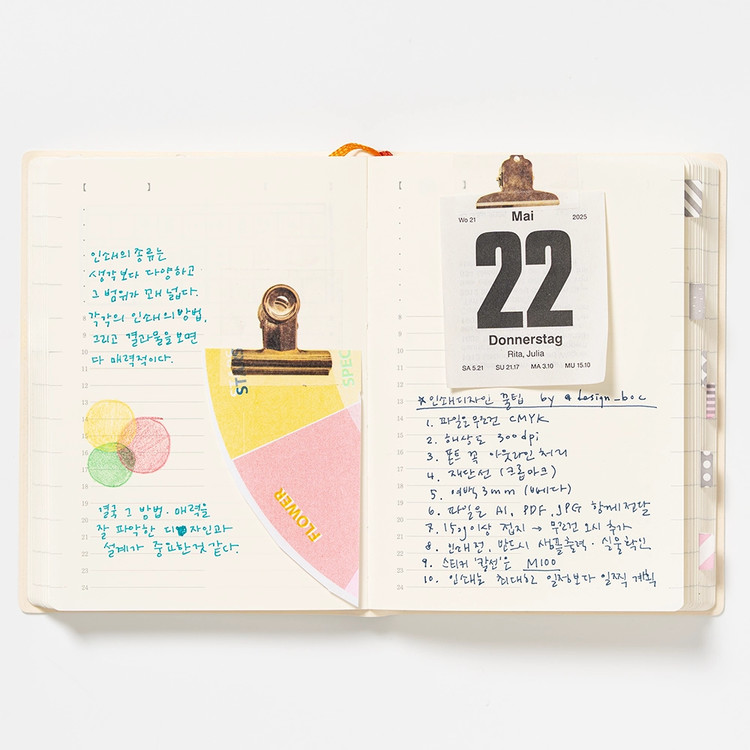 인쇄의 종류는
생각보다 다양하고
그 범위가 꽤 넓다.
각각의 인쇄의 방법,
그리고 결과물을 보면
다 매력적이다.
결국 그 방법·매력을
잘 파악한 디자인과
설계가 중요한것 같다.
ST
SPEC
FLOWER
8
9
10
11
12
13
14
15
16
17
18
19
20
21
22
23
24
Wo 21 Mai 2025
22
Donnerstag
Rita, Julia
SA 5.21 SU 21.17 MA 3.10 MU 15.10
*인쇄디자인 꿀팁 by @design_boc
1. 파일은 무조건 CMYK
2. 해상도 300dpi
3. 폰트 꼭 아웃라인 처리
4. 재단선 (크롭마크)
5. 여백 3mm (베다)
6. 파일은 AI, PDF, JPG 함께 전달
7. 150g이상 접지 → 무조건 오시 추가
8. 인쇄 전, 반드시 샘플출력·실물확인
9. 스티커 '칼선'은 M100
10. 인쇄는 최대한 일정보다 일찍 계획
8
9
10
11
12
13
14
15
16
17
18
19
20
21
22
23
24